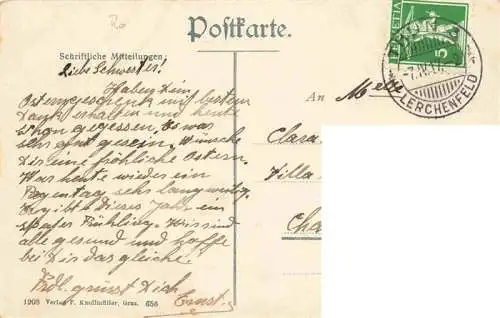 Postkarte.
Schriftliche Mitteilungen:
Liebe Schwester!
Haben Dein
Ostergeschenk mit bestem
Dank erhalten und heute
schon gegessen. Es war
sehr gut gesein. Wünsche
Dir eine fröhliche Ostern.
War heute wieder ein
Regentag sehr langweilig.
Es gibt dieses Jahr ein
später Frühling. Wir sind
alle gesund und hoffe
bei Dir das gleiche.
Frdl. grüsst Dich
Ernst.
1908 Verlag F. Knollmüller, Graz. 656
An
Clara
Villa
HELVETIA
5
LERCHENFELD